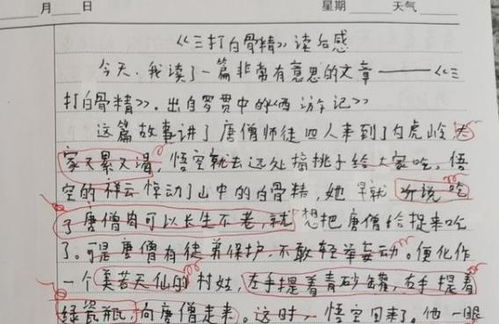 月 日 星期 天气
《三打白骨精》读后感
今天，我读了一篇非常有意思的文章——《三
打白骨精》。出自罗贯中的《西游记》
这篇故事讲了唐僧师徒四人来到了白虎岭，大
家又累又渴，悟空就去远处摘桃子给大家吃，悟
空的祥云惊动了山中的白骨精，她早就听说吃
了唐僧肉可以长生不老，就想把唐僧给捉来吃
了。可是唐僧有徒弟保护，不敢轻举妄动。便化作
一个美若天仙的村姑，左手提着青砂罐，右手提着
绿瓷瓶，向唐僧走来。这时，悟空回来了。他一眼